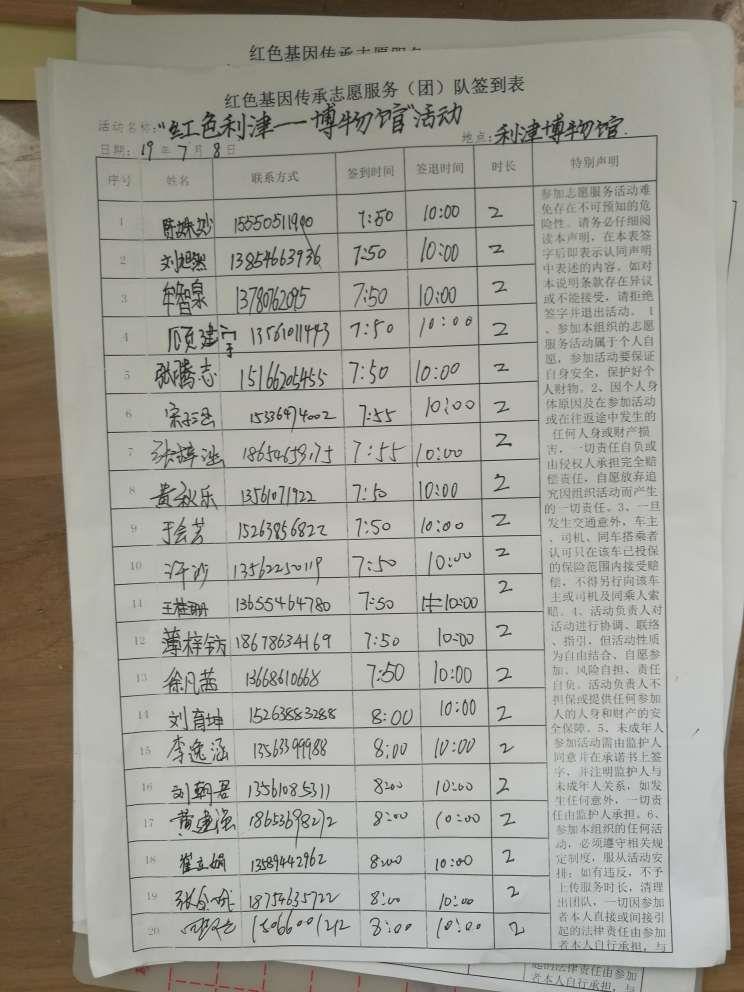 红色基因传承志愿服务
红色基因传承志愿服务（团）队签到表
活动名称："红色利津——博物馆"活动
日期：19年7月8日 地点：利津博物馆
序号 姓名 联系方式 签到时间 签退时间 时长 特别声明
1 15550511900 7:50 10:00 2
2 刘旭 13854663936 7:50 10:00 2
3 牟智泉 13780762095 7:50 10:00 2
4 顾建 13561011443 7:50 10:00 2
5 张腾志 15166205455 7:50 10:00 2
6 宋 15336474002 7:55 10:00 2
7 张梓涵 7:55 10:00 2
8 黄秋乐 13561071922 7:50 10:00 2
9 于会芳 15263856822 7:50 10:00 2
10 许沙 13562250119 7:50 10:00 2
11 王桂珊 13655464780 7:50 10:00 2
12 薄梓 18678634169 7:50 10:00 2
13 徐凡茜 13668610668 7:50 10:00 2
14 刘育坤 15263883288 8:00 10:00 2
15 李逸涵 13563399988 8:00 10:00 2
16 刘朝君 13561085311 8:00 10:00 2
17 黄建强 18653698272 8:00 10:00 2
18 崔立娟 13589442962 8:00 10:00 2
19 张 18754635722 8:00 10:00 2
20 15066001212 8:00 10:00 2
参加志愿服务活动难
免存在不可预知的危
险性。请务必仔细阅
读本声明，在本表签
字后即表示认同声明
中表述的内容。如对
本说明条款存在异议
或不能接受，请拒绝
签字并退出活动。 1
、参加本组织的志愿
服务活动属于个人自
愿，参加活动要保证
自身安全，保护好个
人财物。2、因个人身
体原因及在参加活动
或在往返途中发生的
任何人身或财产损
害，一切责任自负或
由侵权人承担完全赔
偿责任，自愿放弃追
究因组织活动而产生
的一切责任。3、一旦
发生交通意外，车主
、司机、同车搭乘者
认可只在该车已投保
的保险范围内接受赔
偿，不得另行向该车
主或司机及同乘人索
赔。4、活动负责人对
活动进行协调、联络
、指引，但活动性质
为自由结合、自愿参
加、风险自担、责任
自负。活动负责人不
担保或提供任何参加
人的人身和财产的安
全保障。5、未成年人
参加活动需由监护人
同意并在承诺书上签
字，并注明监护人与
未成年人关系，如发
生任何意外，一切责
任由监护人承担。6、
参加本组织的任何活
动，必须遵守相关规
定制度，服从活动安
排；如有违反，不予
上传服务时长，清理
出团队，一切因参加
者本人直接或间接引
起的法律责任由参加
者本人自行承担，与
起的法律责任由参加
者本人自行承担，与